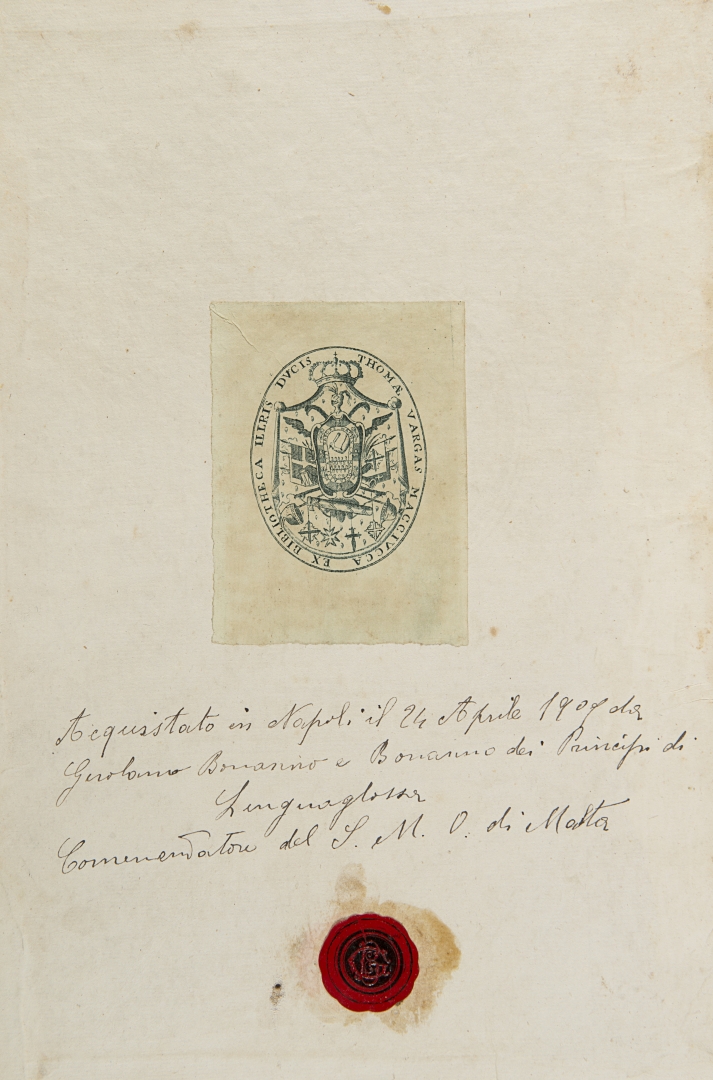 EX BIBLIOTHECA ILLRIS DVCIS THOMÆ VARGAS MACCIVCCA
Acquistato in Napoli il 24 Aprile 1909 da
Gerolamo Bonanno e Bonanno dei Principi di
Linguaglossa
Commendatore del S. M. O. di Malta